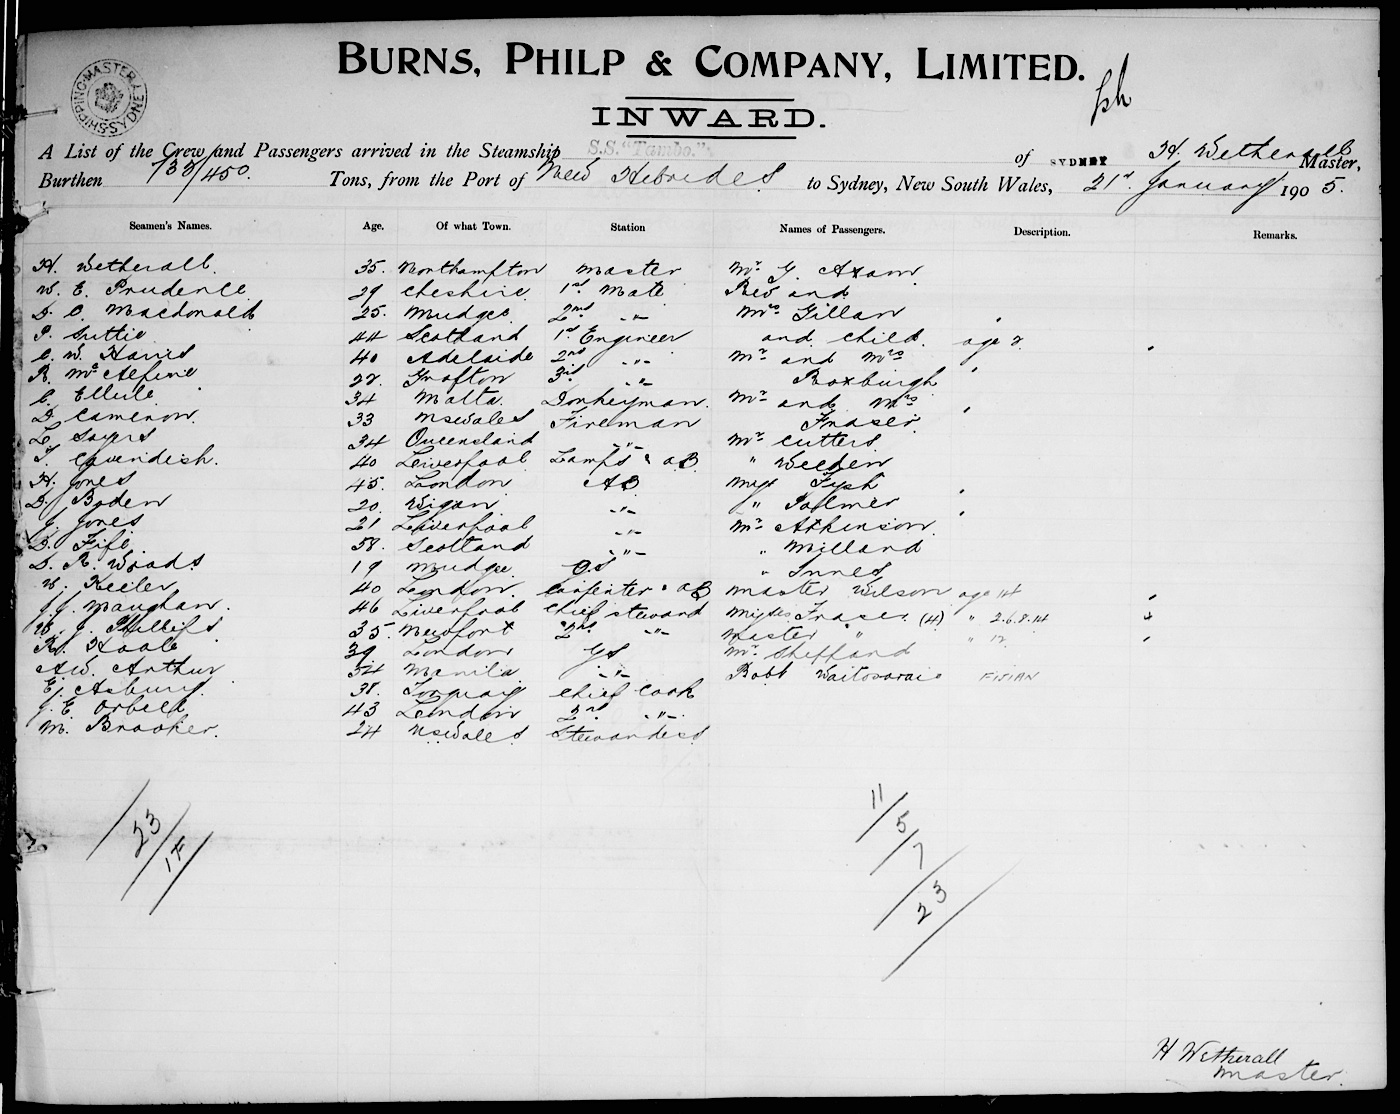 BURNS, PHILP & COMPANY, LIMITED.
INWARD.
SHIPPING MASTER SYDNEY
A List of the Crew and Passengers arrived in the Steamship S.S. "Tambo." of SYDNEY H. Wetherall Master,
Burthen 733/450 Tons, from the Port of New Hebrides to Sydney, New South Wales, 21st January 1905.
Seamen's Names. Age, Of what Town. Station Names of Passengers. Description. Remarks.
H. Wetherall. 35. Northampton Master Mr G. Axam
W. E. Prudence 29 Cheshire 1st Mate Rev and
D. C. Macdonald 25. Mudgee 2nd -"- Mrs Gillan
P. Suttie 44 Scotland 1st Engineer and child age 2
C. W. Harris 40 Adelaide 2nd -"- Mr and Mrs
R. McAlpine 22. Grafton 3rd -"- Roxburgh
C. Ellule 34 Malta Donkeyman. Mr and Mrs
D. Cameron. 33 NSWales Fireman Fraser
L. Sayers 34 Queensland -"- Mr Cutters
T. Cavendish. 40 Liverpool Lamps & AB " Weeden
H. Jones 45. London AB Miss Fysh
D. Boden 20. Wigan -"- "
J. Jones 21 Liverpool -"- Mr Atkinson
D. Fife 58. Scotland -"- " Milland
D. R. Woods 19 Mudgee OS " Innes
W. Keeler 40 London. Carpenter & AB Master Wilson age 14
J. J. Maughan. 46 Liverpool Chief Steward Misses Fraser (4) " 2.6.8.14
W. J. Phillips 35. Newport 2nd -"- Master " " 12
R. Hoole 39 London GS Mr Sheffland
A.W. Arthur 34 Manila -"- Bobt Waitovarai FIJIAN
E. J. Asbury. 38. Torquay Chief Cook
J. E. Orbell 43 London 2nd -"-
M. Brooker. 24 NSWales Stewardess
23
17
11
5
7
23
H Wetherall
Master.